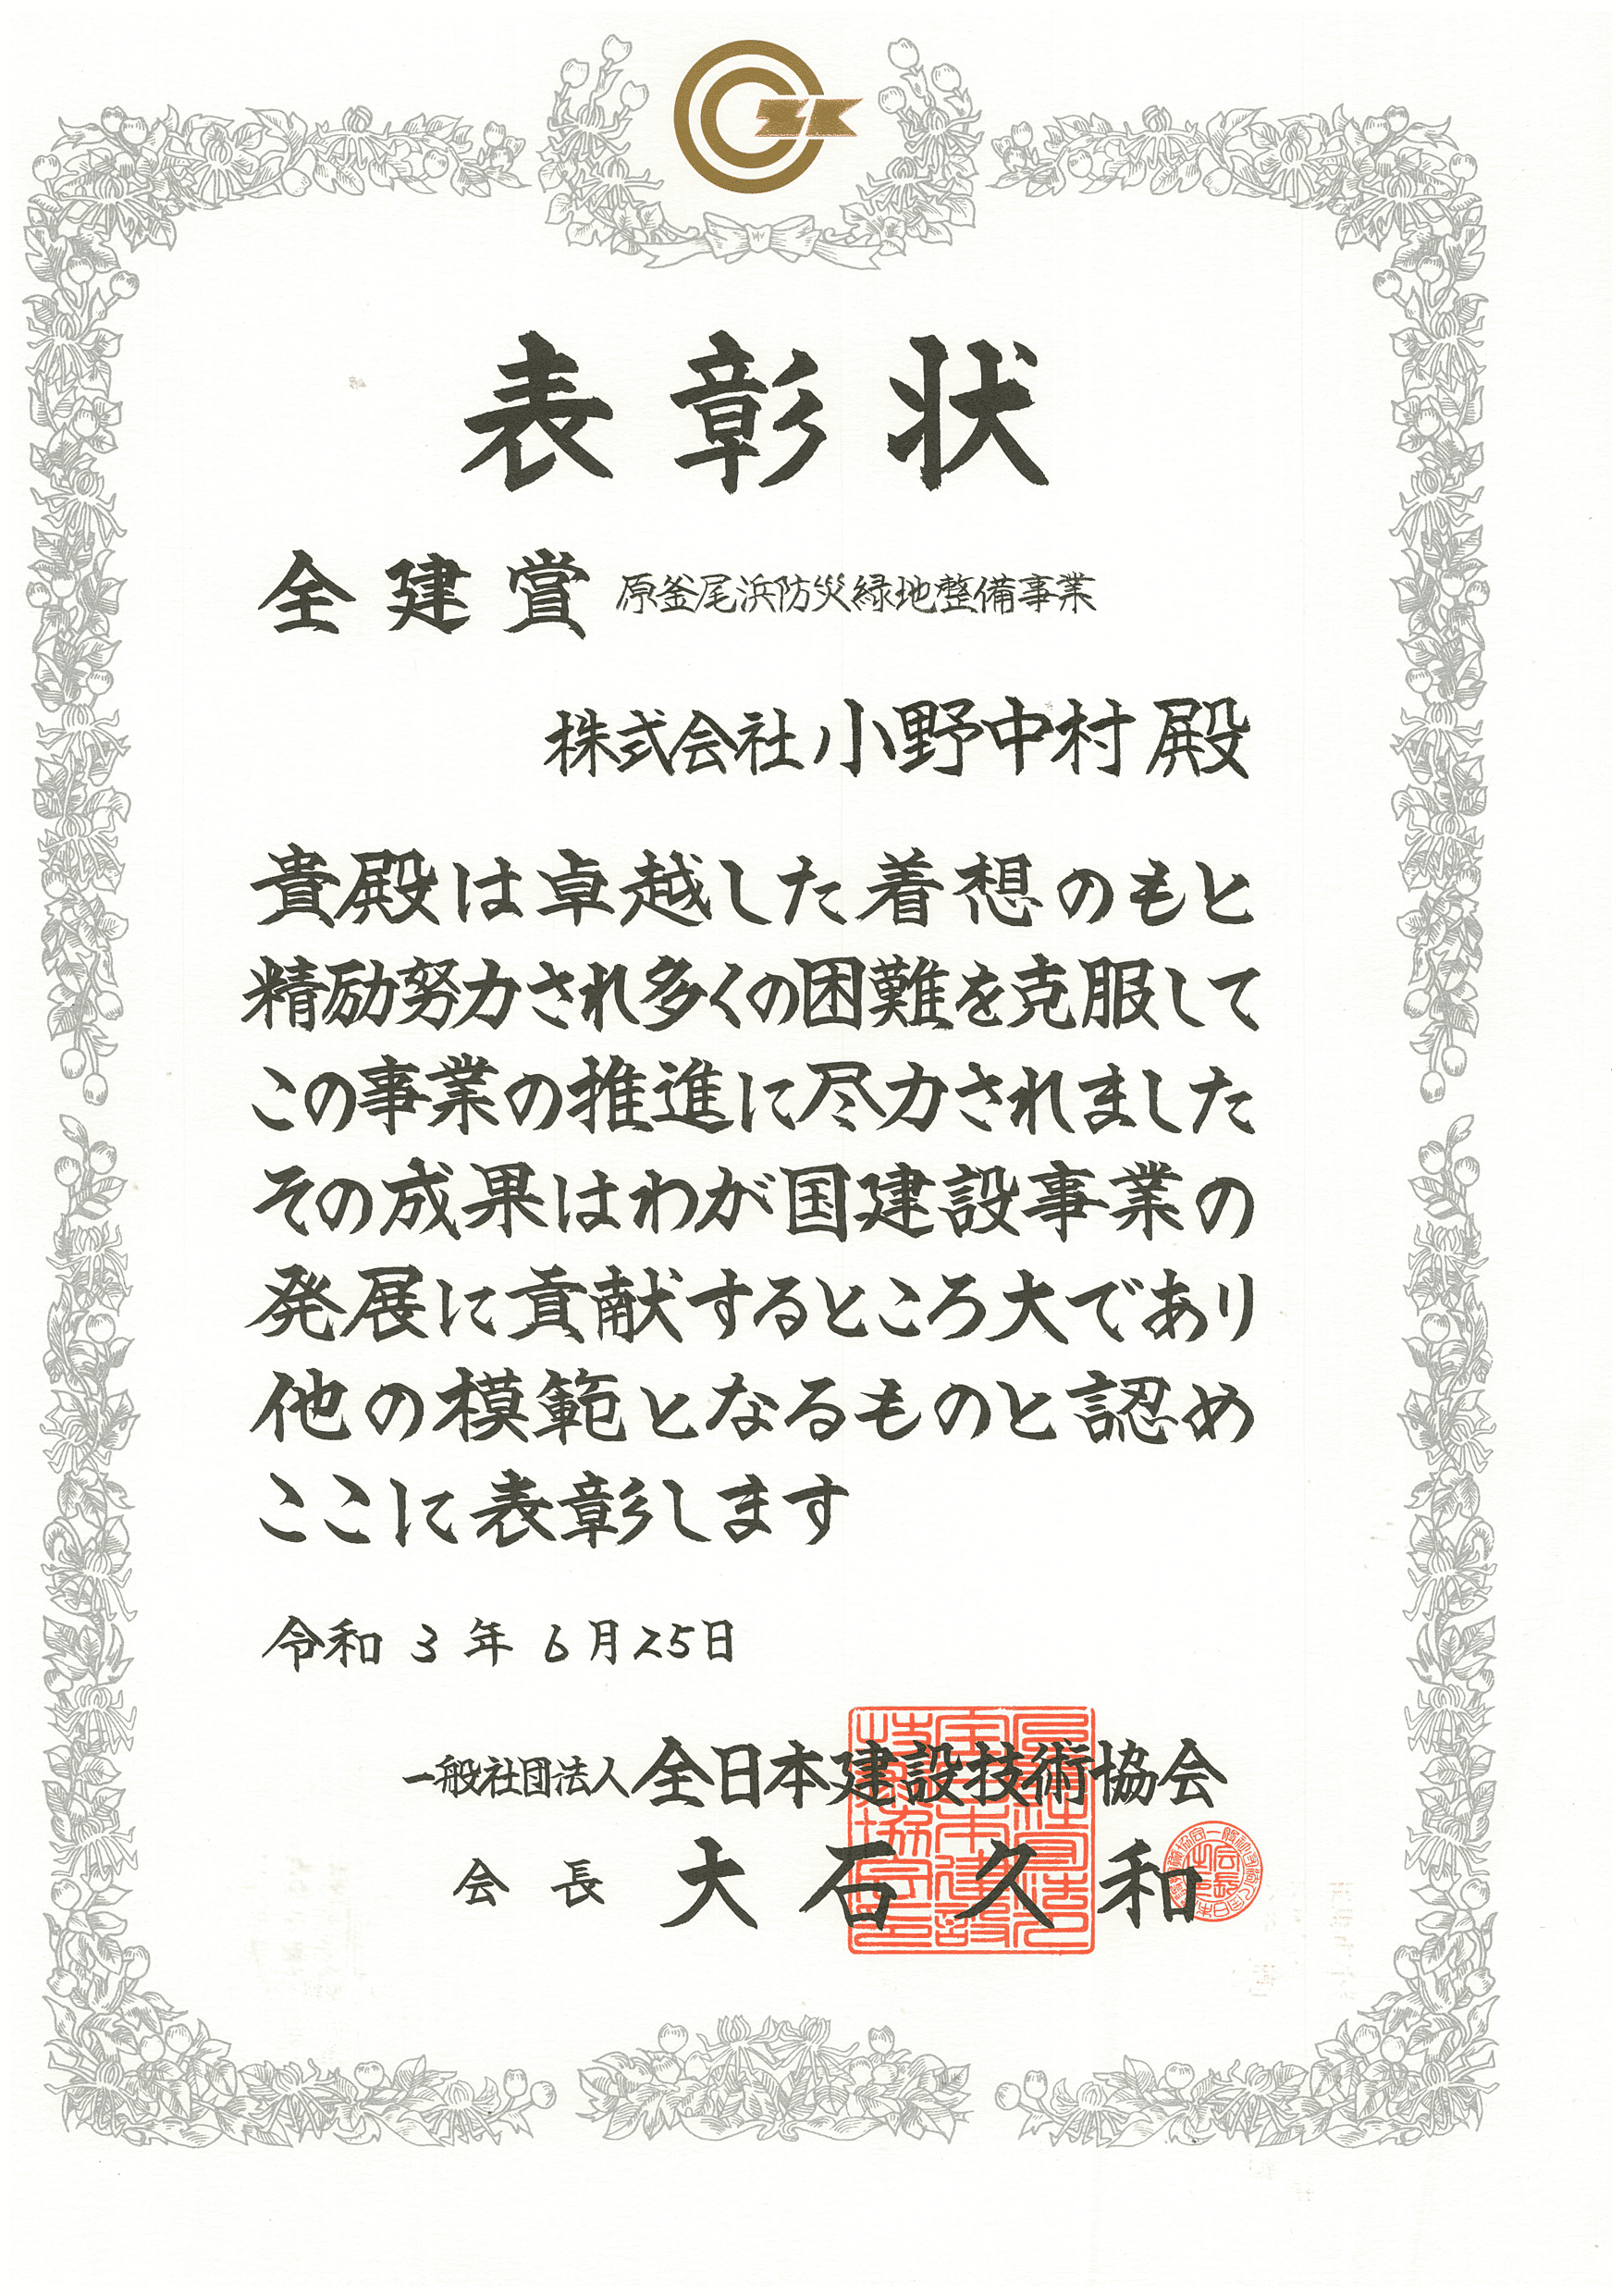 表彰状
全建賞 原釜尾浜防災緑地整備事業
株式会社小野中村殿
貴殿は卓越した着想のもと
精励努力され多くの困難を克服して
この事業の推進に尽力されました
その成果はわが国建設事業の
発展に貢献するところ大であり
他の模範となるものと認め
ここに表彰します
令和3年6月25日
一般社団法人全日本建設技術協会
会長 大石久和